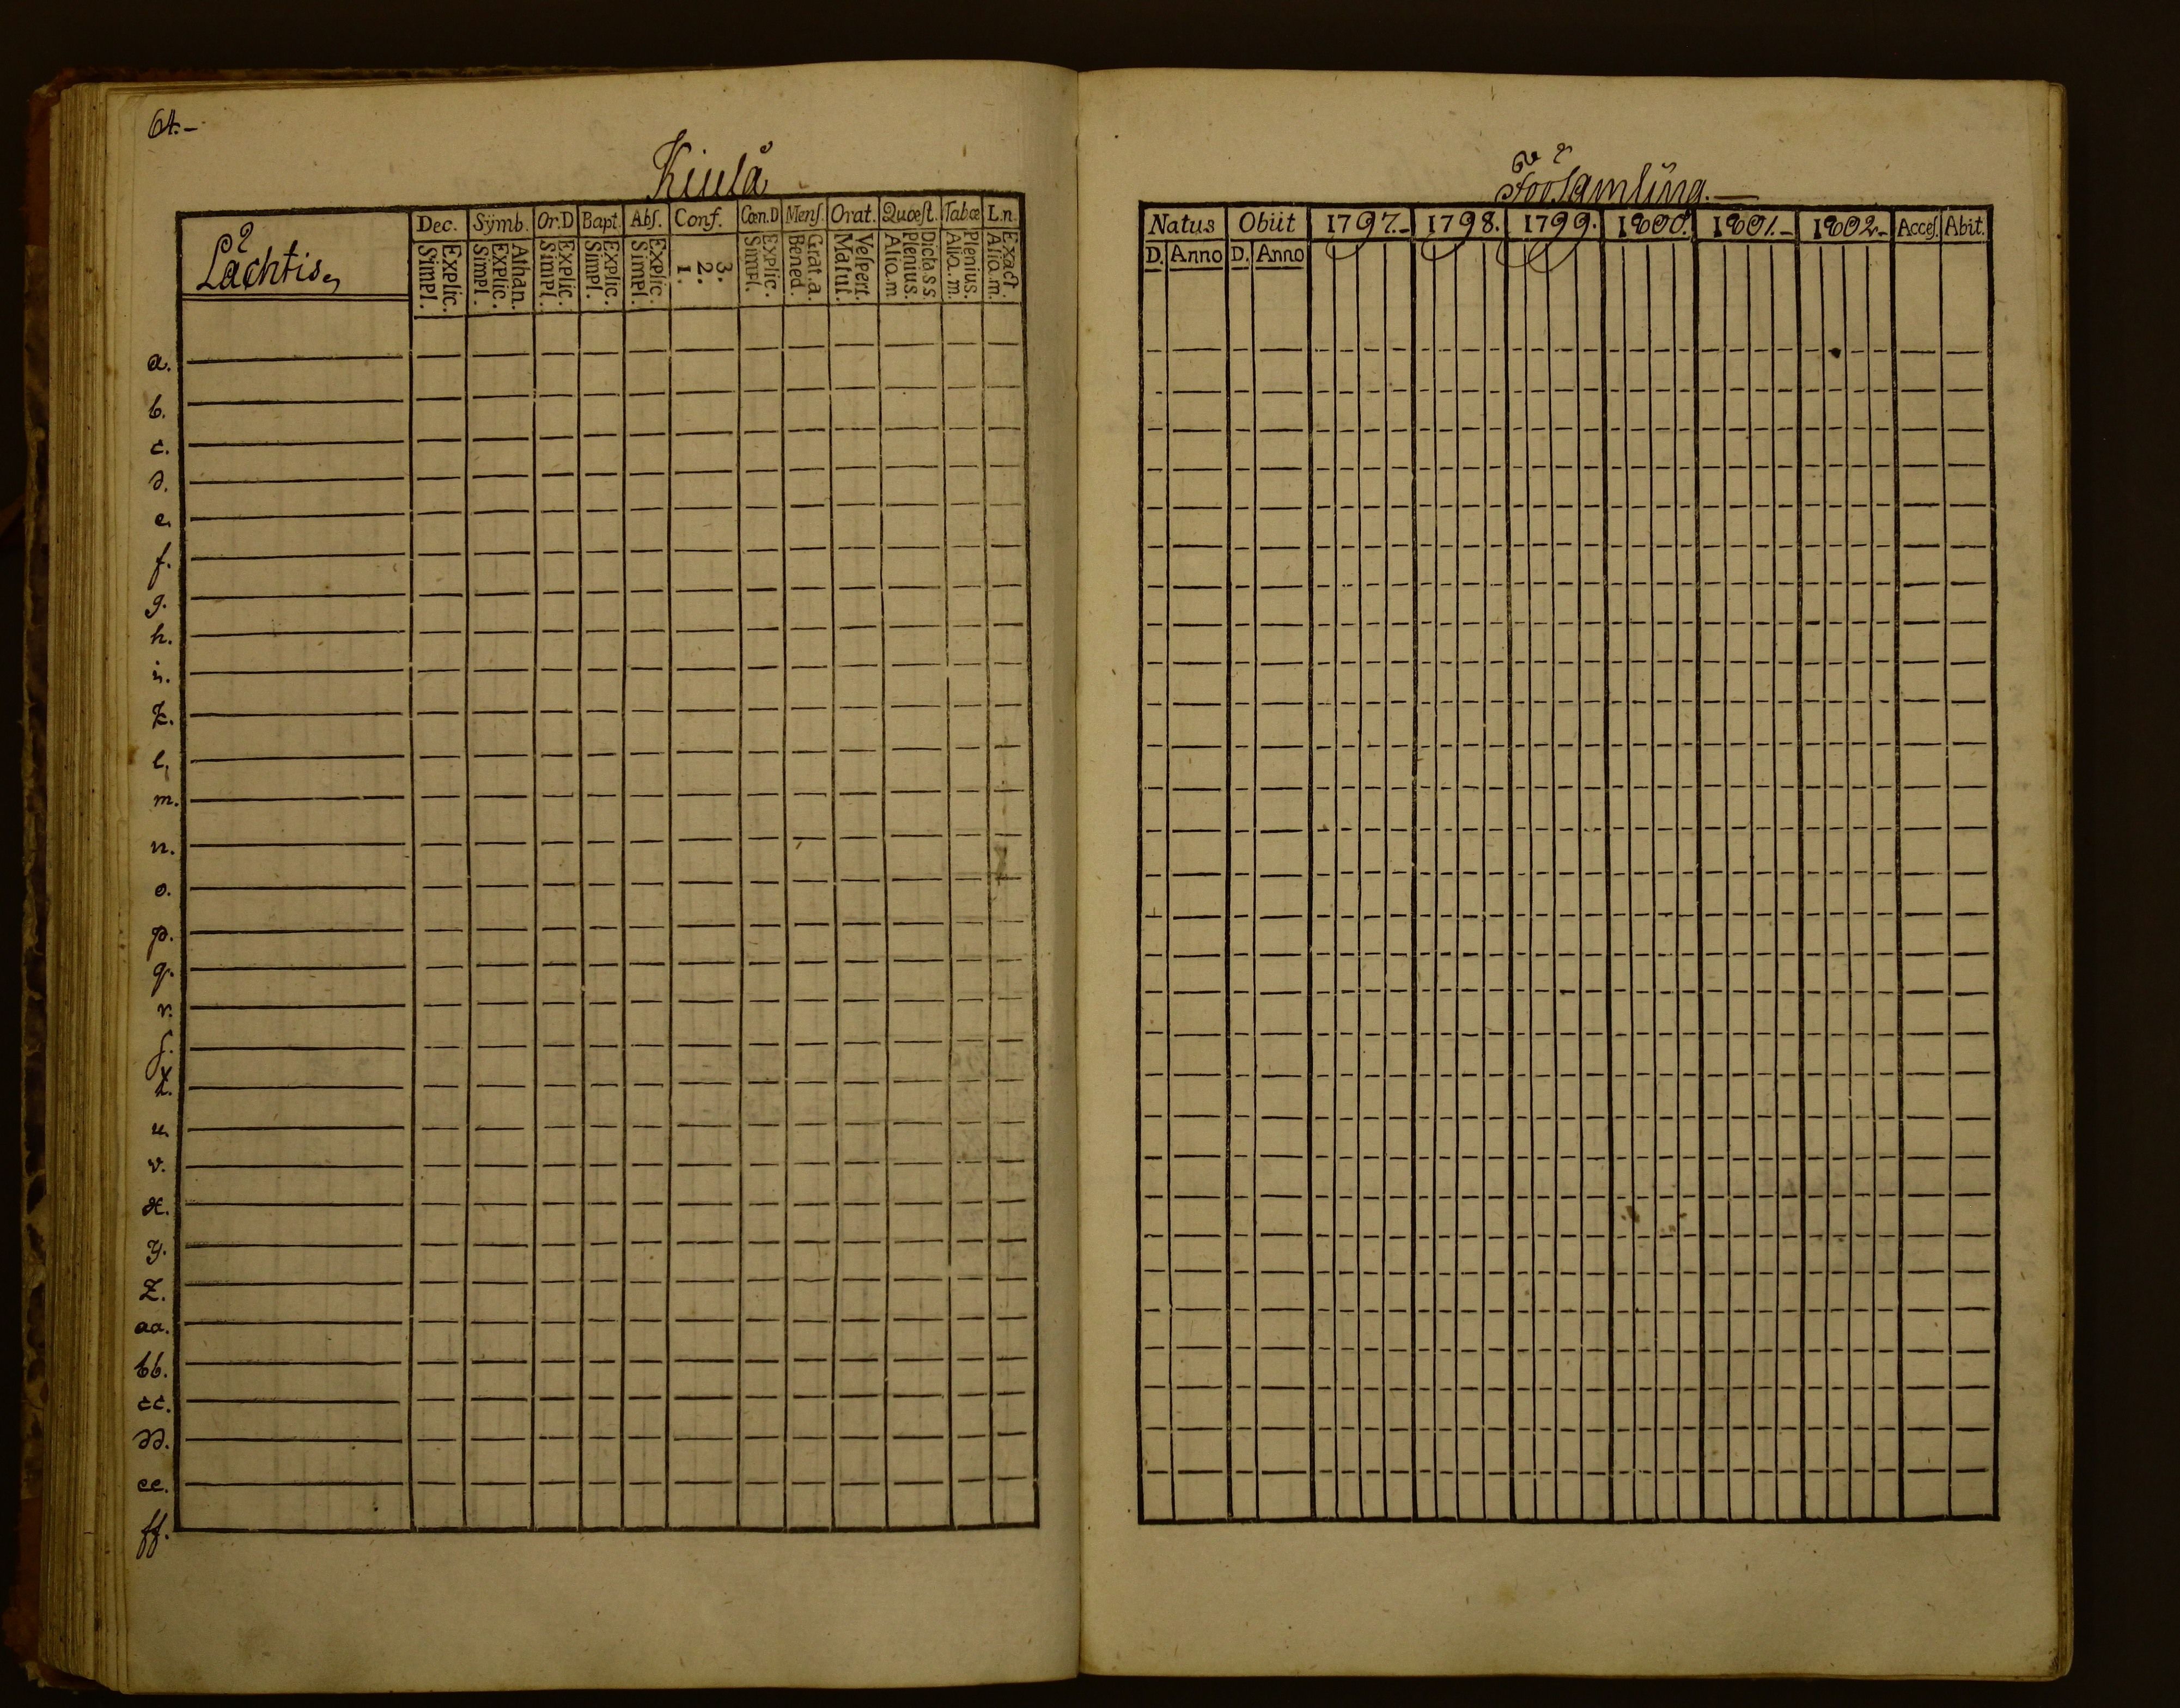 64.-
Kiulå
Dec. Sÿmb. Or.D Bapt. Abſ. Conf. Cœn.D Menſ. Orat. Quœſt. Tabœ L.n.
Lächtis,
Simpl. Explic. Simpl. Explic. Athan. Simpl. Explic. Simpl. Explic. Simpl. Explic. 1. 2. 3. Simpl. Explic. Bened. Grat.a. Matut. Veſpert. Alio.m Plenius. Dicta.s.s Alio.m. Plenius. Alio.m. Exact.
a.
b.
c.
d.
e.
f.
g.
h.
i.
k.
l.
m.
n.
o.
p.
q.
r.
ſ.
t.
u.
v.
x.
y.
z.
aa.
bb.
cc.
dd.
ee.
ff.
Förſamling.—
Natus Obiit 1797.- 1798. 1799. 1800. 1801.- 1802.- Acceſ. Abit.
D. Anno D. Anno